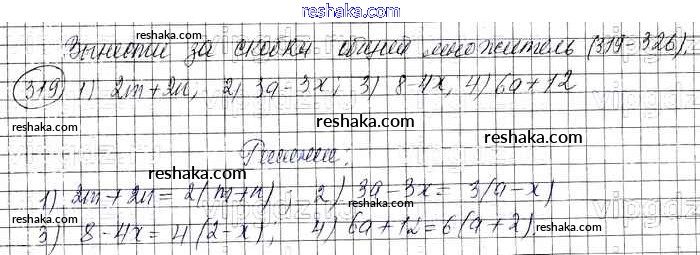 reshaka.com
Вынести за скобки общий множитель (319-326).
319) 1) 2m+2n, 2) 3a-3x; 3) 8-4x, 4) 6a+12
reshaka.com
reshaka.com
reshaka.com
reshaka.com
Решение:
reshaka.com
reshaka.com
1) 2m+2n=2(m+n); 2) 3a-3x=3(a-x)
3) 8-4x=4(2-x); 4) 6a+12=6(a+2)
reshaka.com
reshaka.com
reshaka.com